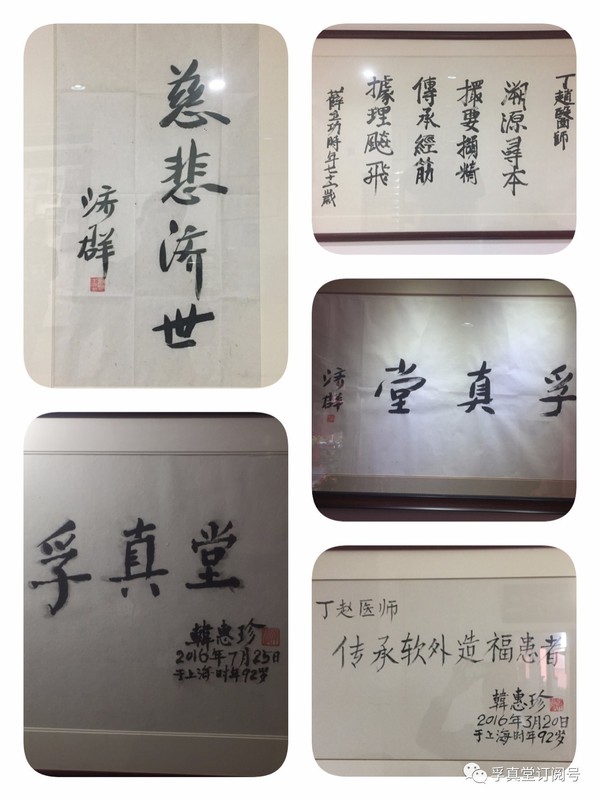 慈悲济世
济群
丁趙醫師
溯源尋本
撮要擷
傳承經筋
據理飈飛
薛立功時年七十歲
孚真堂
济群
孚真堂
韓惠珍
2016年7月25日
于上海时年92岁
丁赵医师
传承软外造福患者
韓惠珍
2016年3月20日
于上海时年92岁
孚真堂订阅号